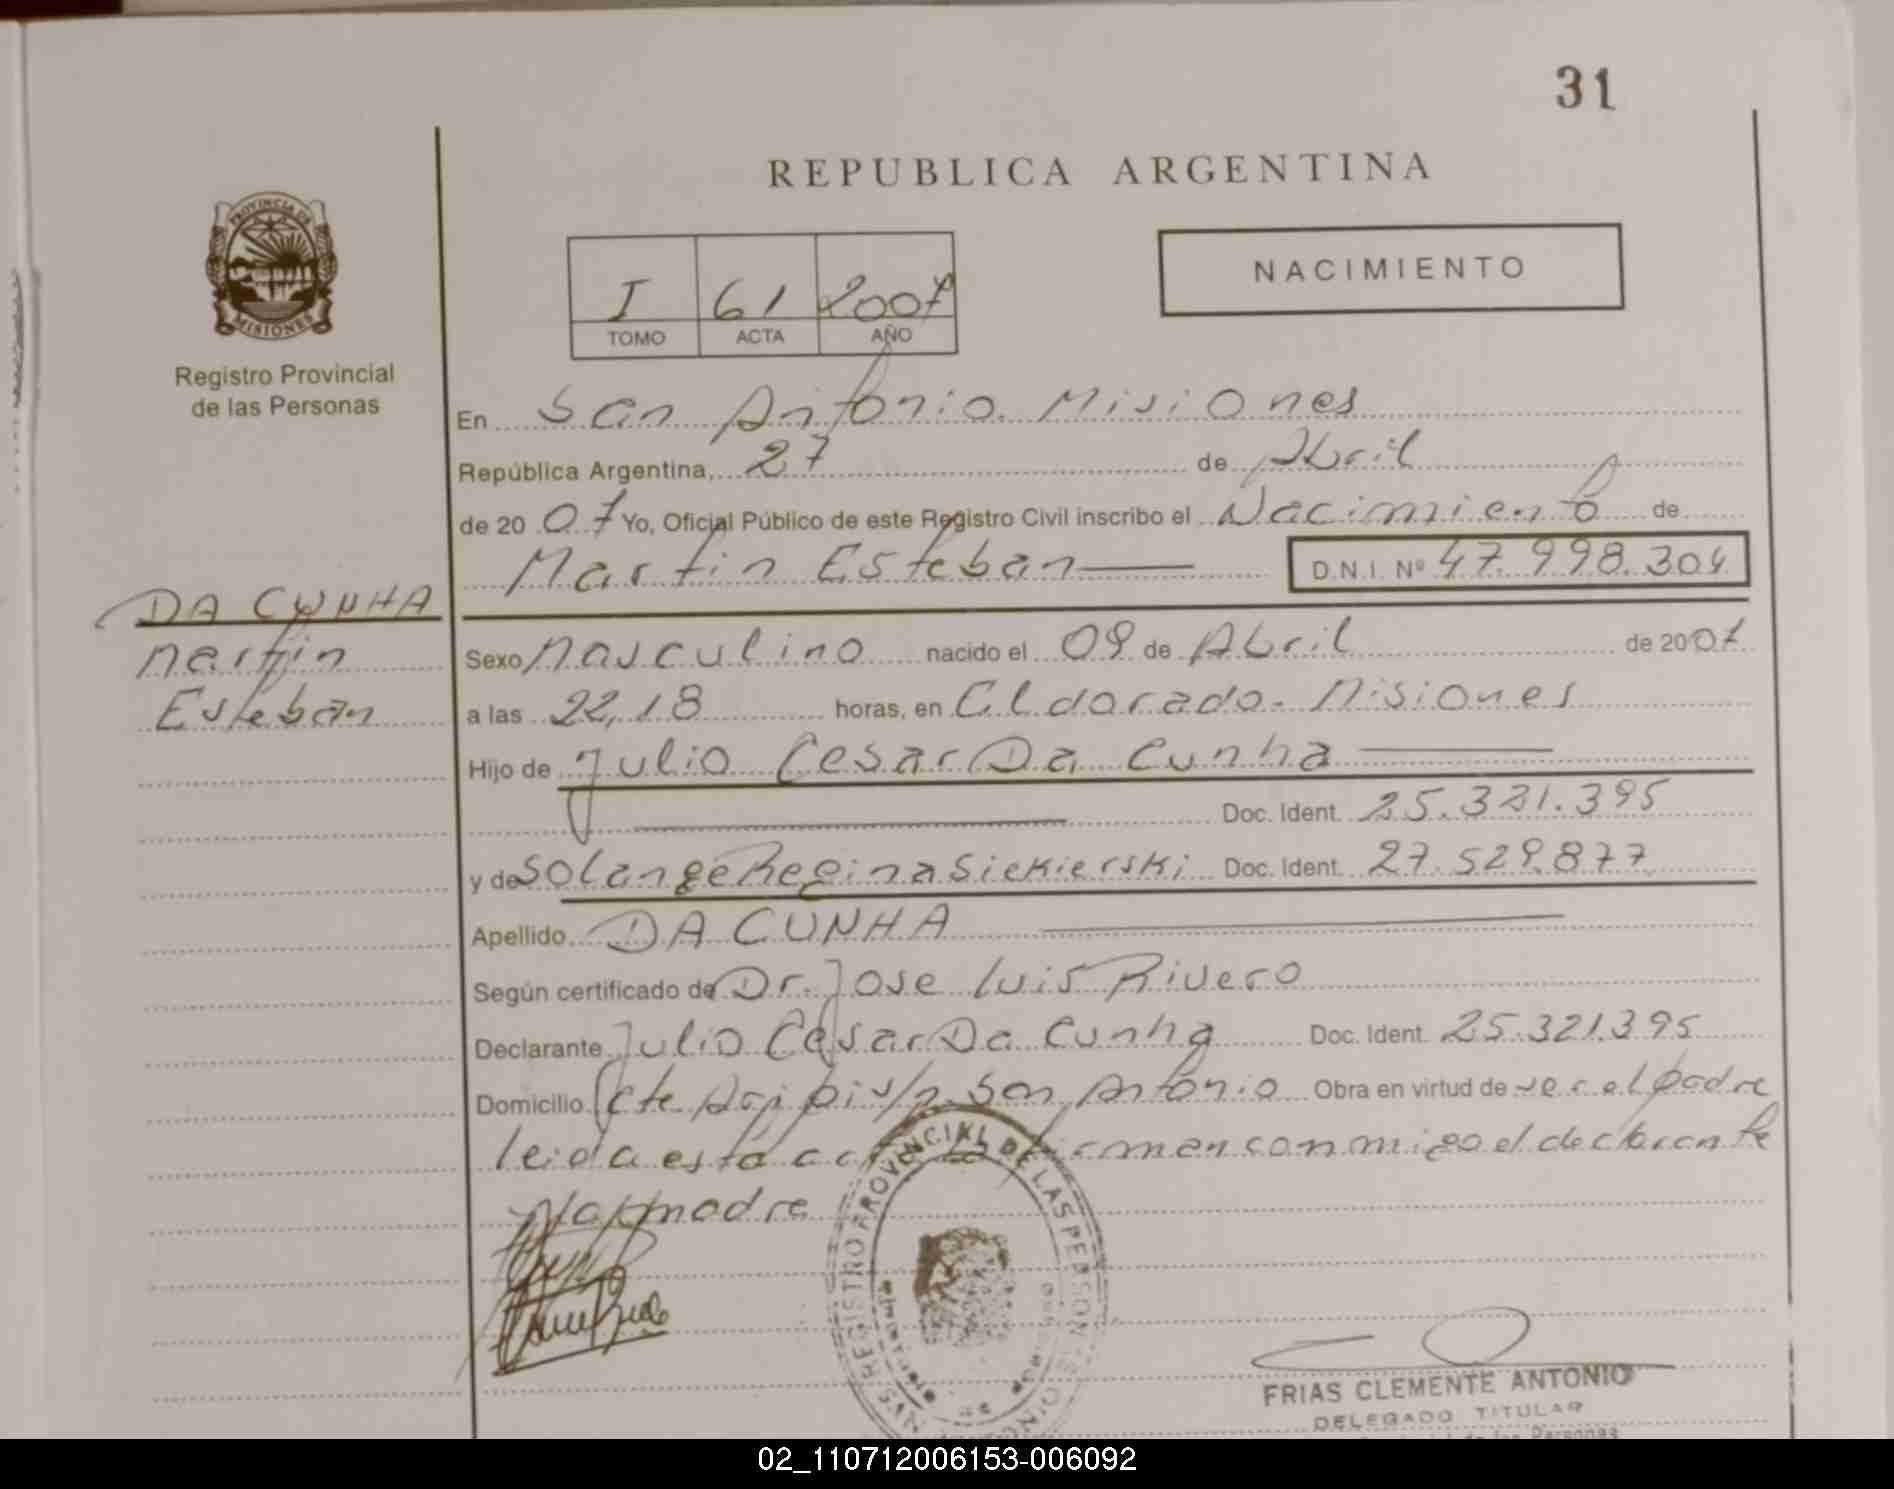 31
REPUBLICA ARGENTINA
PROVINCIA DE
MISIONES
Registro Provincial
de las Personas
I 61 2007
TOMO ACTA AÑO
NACIMIENTO
En San Antonio. Misiones
República Argentina, 27 de Abril
de 20 07 Yo, Oficial Público de este Registro Civil inscribo el Nacimiento de
Martin Esteban D.N.I. Nº 47.998.304
DA CUNHA
Martin
Esteban
Sexo Masculino nacido el 09 de Abril de 2007
a las 22,18 horas, en Eldorado. Misiones
Hijo de Julio Cesar Da Cunha
Doc. Ident. 25.321.395
y de Solange Regina Siekierski Doc. Ident. 27.529.877
Apellido DA CUNHA
Según certificado de Dr. Jose Luis Rivero
Declarante Julio Cesar Da Cunha Doc. Ident. 25.321.395
Domicilio San Antonio Obra en virtud de ser el padre
leida esta acta firman conmigo el declarante
madre
REGISTRO PROVINCIAL DE LAS PERSONAS
FRIAS CLEMENTE ANTONIO
DELEGADO TITULAR
de las Personas
02_110712006153-006092